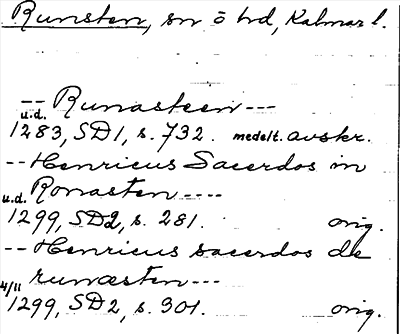 Runsten, sn ö hd, Kalmar l.
-- Runasteen ---
u.d.
1283, SD1, s. 732. medelt. avskr.
-- Henricus Sacerdos in
u.d. Ronasten ----
1299, SD2, s. 281. orig.
-- Henricus sacerdos de
4/11 runæsten ---
1299, SD2, s. 301. orig.